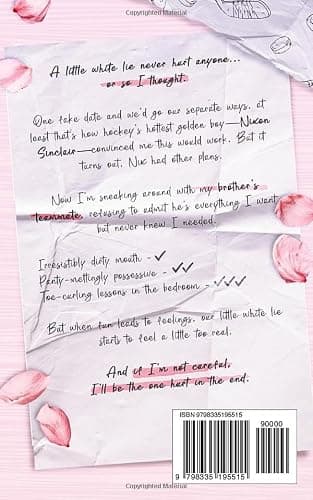 A little white lie never hurt anyone...
or so I thought.
One fake date and we'd go our separate ways, at
least that's how hockey's hottest golden boy—Nixon
Sinclair—convinced me this would work. But it
turns out, Nix had other plans.
Now I'm sneaking around with my brother's
teammate, refusing to admit he's everything I want
but never knew I needed.
Irresistibly dirty mouth - ✓
Panty-meltingly possessive - ✓✓
Toe-curling lessons in the bedroom - ✓✓✓
But when fun leads to feelings, our little white lie
starts to feel a little too real.
And if I'm not careful,
I'll be the one hurt in the end.
ISBN 9798335195515
90000
9 798335 195515